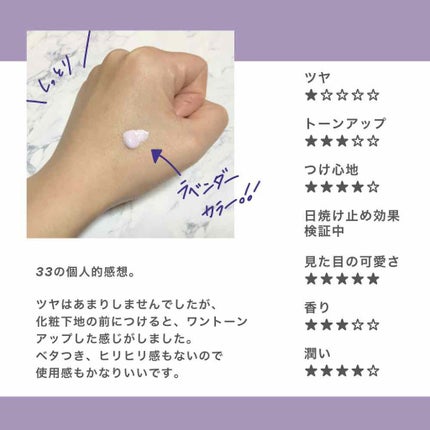 しっとり
ラベンダー
カラー!!
33の個人的感想。
ツヤはあまりしませんでしたが、
化粧下地の前につけると、ワントーン
アップした感じがしました。
ベタつき、ヒリヒリ感もないので
使用感もかなりいいです。
ツヤ
★☆☆☆☆
トーンアップ
★★★☆☆
つけ心地
★★★★☆
日焼け止め効果
検証中
見た目の可愛さ
★★★★★
香り
★★★☆☆
潤い
★★★★☆